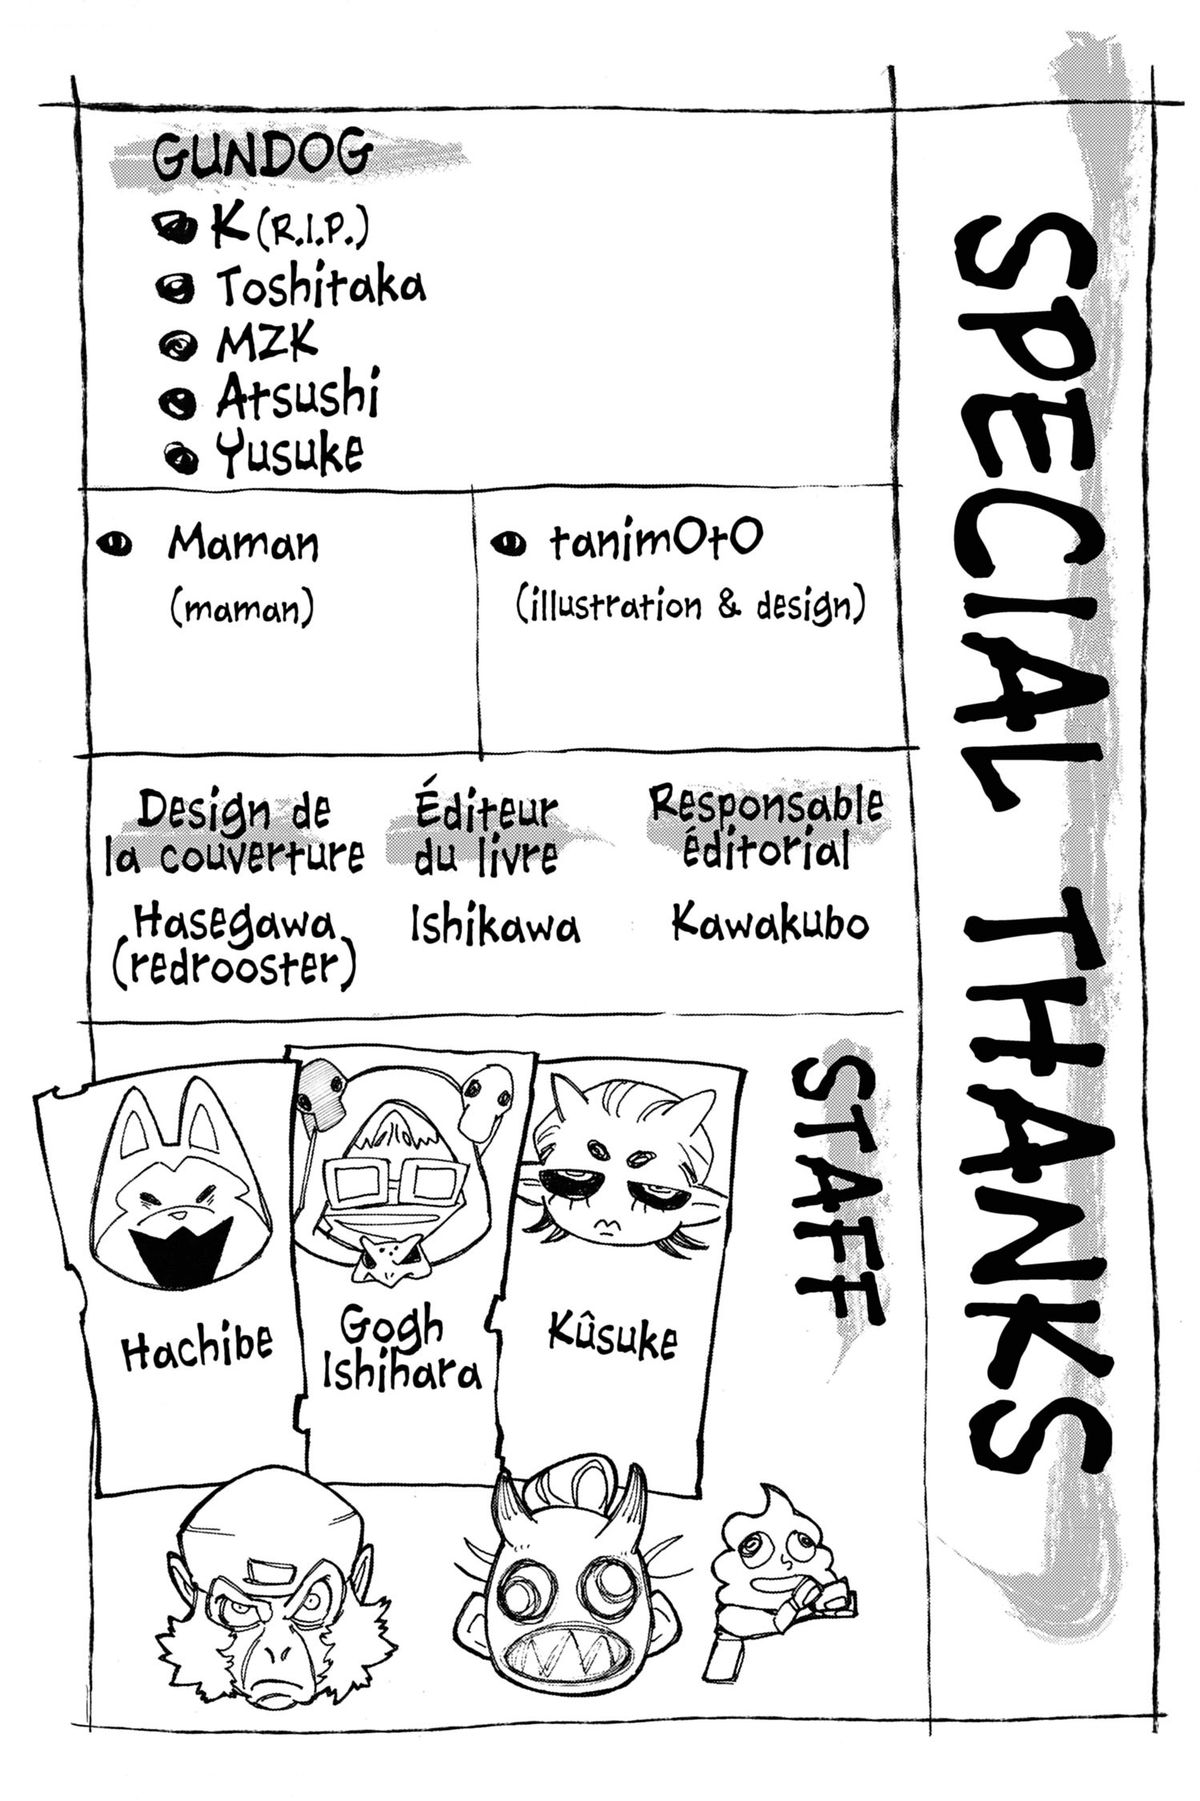 SPECIAL THANKS
GUNDOG
K (R.I.P.)
Toshitaka
MZK
Atsushi
Yusuke
Maman
(maman)
tanimOtO
(illustration & design)
Design de
la couverture
Hasegawa
(redrooster)
Éditeur
du livre
Ishikawa
Responsable
éditorial
Kawakubo
STAFF
Hachibe
Gogh
Ishihara
Kûsuke